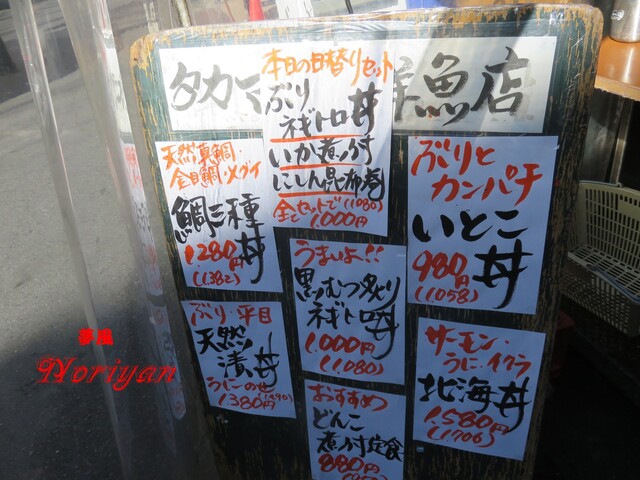 タカマ 鮮魚店
本日の日替りセット
ぶり
ネギトロ丼
いか煮つけ
にしん昆布巻
全てセットで(1080)
1,000円
天然真鯛・
金目鯛・メダイ
鯛三種丼
1280円
(1382)
ぶりと
カンパチ
いとこ丼
980円
(1058)
うまいよ!!
黒むつ炙り
ネギトロ丼
1.000円
(1.080)
ぶり・平目
天然漬丼
うにのせ(1490)
1380円
サーモン・
うに・イクラ
北海丼
1580円
(1706)
おすすめ
どんこ
煮付定食
880円
夢風
Noriyan